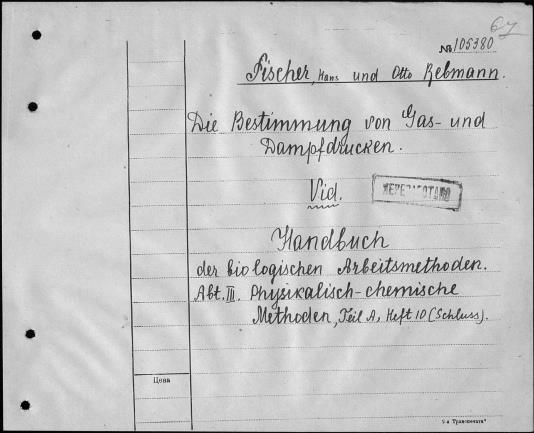 67
№ 105380
Fischer, Hans und Otto Rebmann.
Die Bestimmung von Gas- und
Dampfdrucken.
Vid.
Handbuch
der biologischen Arbeitsmethoden.
Abt. III. Physikalisch-chemische
Methoden, Teil A, Heft 10 (Schluss).
Цена